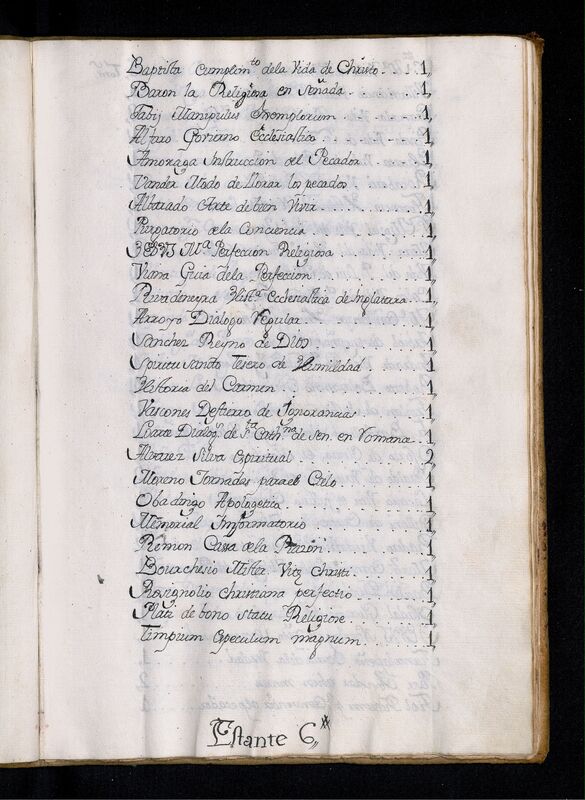 Baptista Cumplim.to dela Vida de Christo. . 1,,
Baron la Religiosa en señada. . . . . . . . . 1,,
Fabij Manipulus Exemplorum . . . . . . . . 1,,
Alfaro Govierno Ecclesiastico . . . . . . . . 1,,
Amoraga Instruccion del Pecador. . . . . . 1,,
Vander Modo de llorar los pecados . . . . . 1,,
Albarado Arte de bien Vivir . . . . . . . . . 1,,
Purgatorio dela Conciencia . . . . . . . . . 1,,
M.a Perfeccion Religiosa . . . . . . . . 1,,
Viana Guia dela Perfeccion . . . . . . . . . 1,,
Rivadeneyra Hist.a Ecclesiastica de Inglaterra. 1,,
Arroyo Dialogo Regular. . . . . . . . . . . . 1,,
Sanchez Reyno de Dios . . . . . . . . . . . . 1,,
Spiritu Santo Tesoro de Humildad. . . . . . 1,,
Historia del Carmen . . . . . . . . . . . . . 1,,
Vascones Destierro de Ignorancias . . . . . 1,,
Dialog.s de S.ta Cath.na de Sen. en Romance. 1,,
Alvarez Silva Spiritual . . . . . . . . . . . 2,,
Moreno Jornadas parael Cielo . . . . . . . . 1,,
Apologetica . . . . . . . . . . . . . 1,,
Memorial Informatorio . . . . . . . . . . . . 1,,
Remon Cassa dela Razon . . . . . . . . . . . 1,,
Mister. Vitę Christi. . . . . . . 1,,
Rosignolio Christiana perfectio. . . . . . . 1,,
Plati de bono statu Religiose . . . . . . . . 1,,
Speculum magnum. . . . . . . . . . 1,,
Estante 6,,